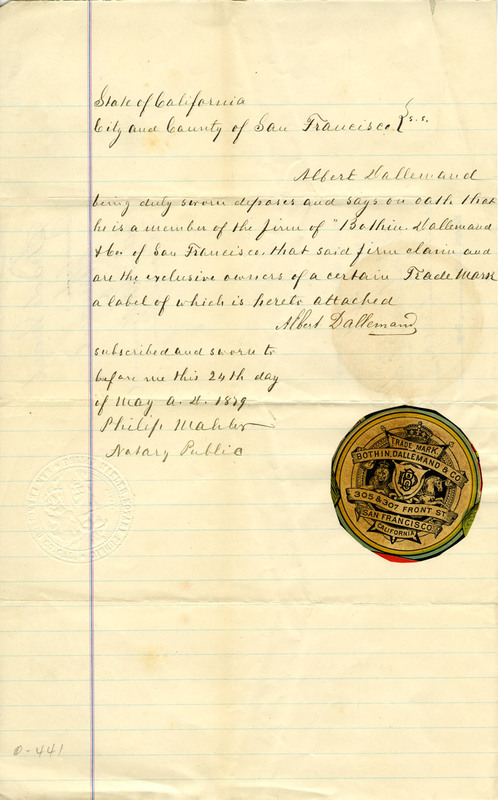 State of California
City and County of San Francisco } s.s.
Albert Dallemand
being duly sworn deposes and says on oath that
he is a member of the firm of "Bothin, Dallemand
& Co. of San Francisco, that said firm claim and
are the exclusive owners of a certain Trade Mark
a label of which is hereto attached
Albert Dallemand
subscribed and sworn to
before me this 24th day
of May A. D. 1879
Philip Mahler
Notary Public
TRADE MARK
BOTHIN, DALLEMAND & CO
305 & 307 FRONT ST
SAN FRANCISCO
CALIFORNIA
0-441